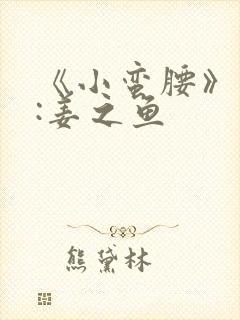 《小蛮腰》
:姜之鱼
熊黛林